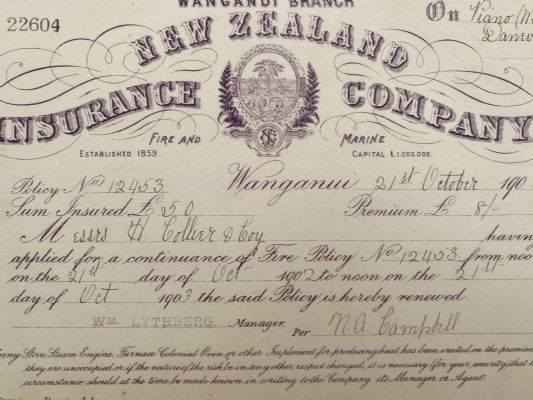 WANGANUI BRANCH
22604
On Piano
NEW ZEALAND
INSURANCE COMPANY
FIRE AND MARINE
ESTABLISHED 1859. CAPITAL £1,000,000.
Policy No 12453 Wanganui 21st October 190
Sum Insured £ 50 Premium £ 8/-
Messrs H. Collier & Coy having
applied for a continuance of Fire Policy No 12453 from noo
on the 21st day of Oct 1902 to noon on the 21st
day of Oct 1903 the said Policy is hereby renewed.
WM. LYTHBERG. Manager.
Per N.A. Campbell
any Stove, Steam Engine, Furnace Colonial Oven or other Implement for producing heat has been erected on the premise
they are unoccupied or if the nature of the risk be in any other respect changed, it is necessary (for your security) that t
circumstance should at the time be made known in writing to the Company its Manager or Agent.